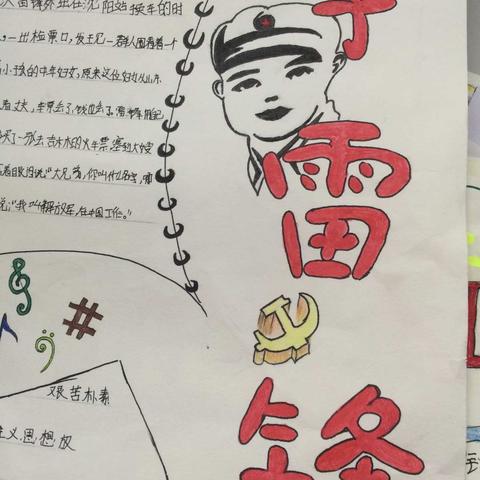 雷锋外出在沈阳站换车的时
一出检票口,发现一群人围着一个
小孩的中年妇女,原来这位妇女从山东
丈夫,车票丢了,钱也丢了。雷锋用自己
买了一张去吉林的火车票塞到大嫂
说:“大兄弟,你叫什么名字,哪
说:“我叫解放军,住中国工作。”
雷
锋
艰苦朴素
主义思想放